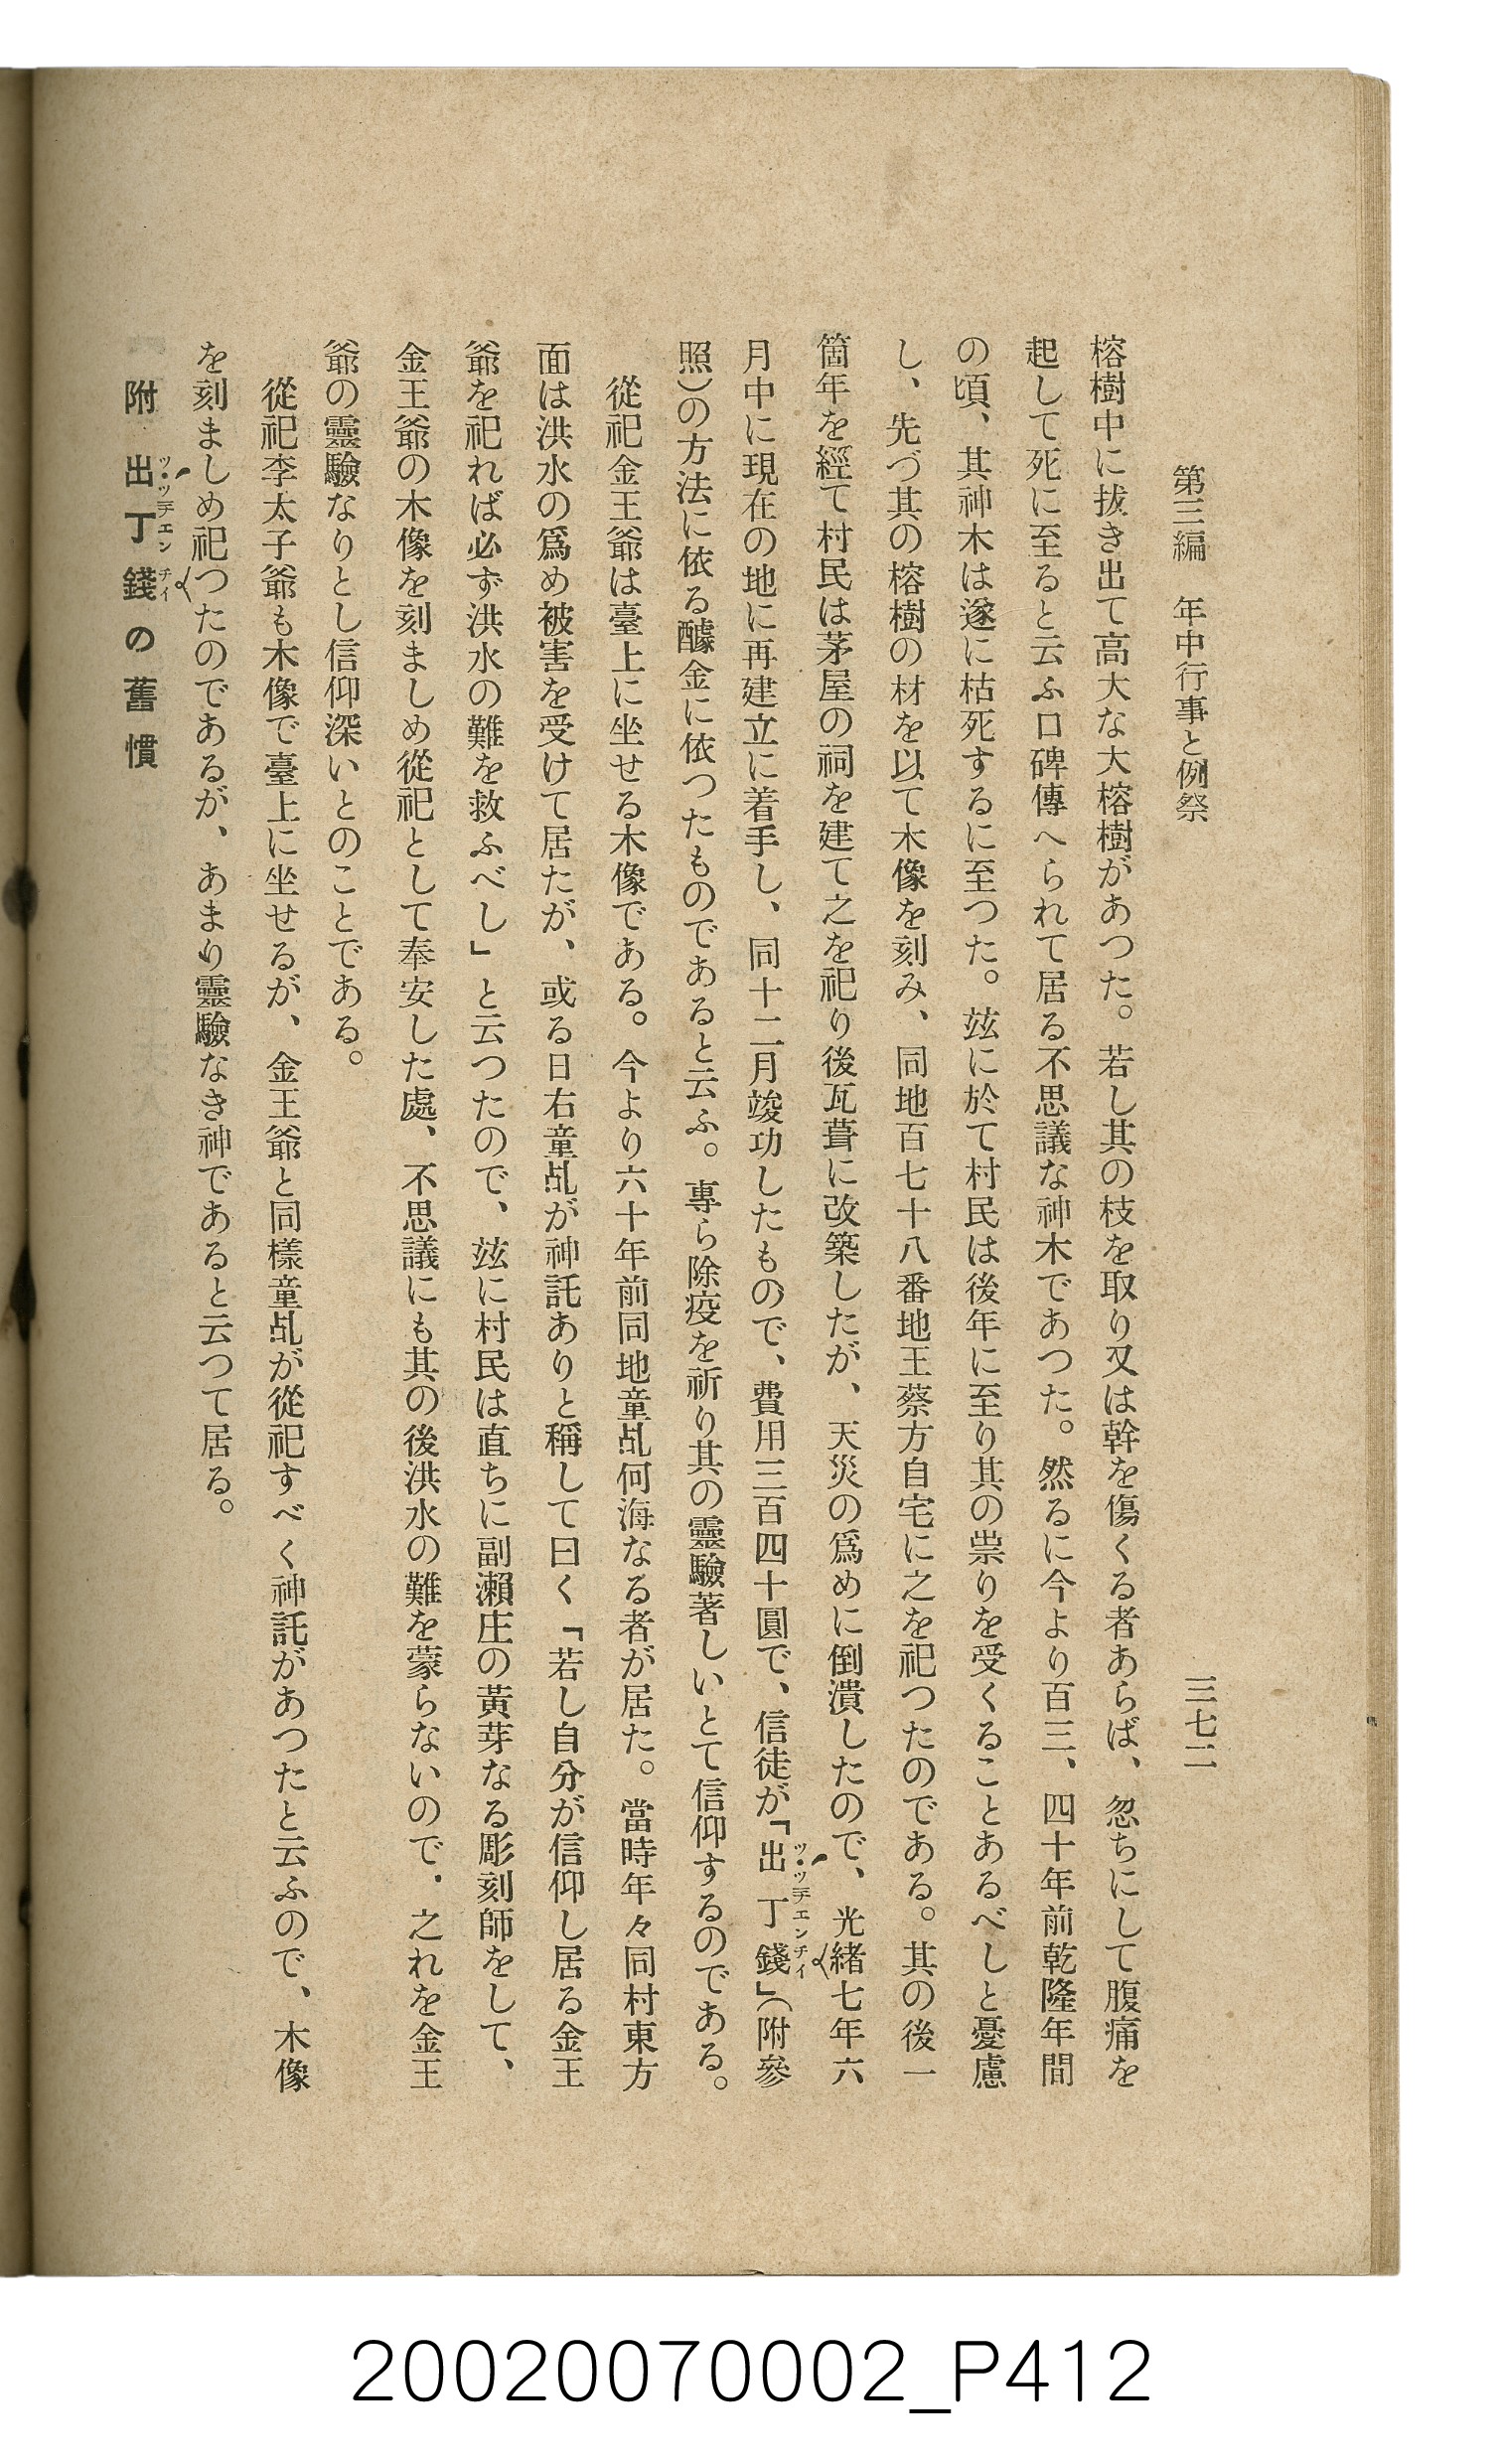 第三編　年中行事と例祭　三七二
榕樹中に拔き出て高大な大榕樹があつた。若し其の枝を取り又は幹を傷くる者あらば、忽ちにして腹痛を
起して死に至ると云ふ口碑傳へられて居る不思議な神木であつた。然るに今より百三、四十年前乾隆年間
の頃、其神木は遂に枯死するに至つた。玆に於て村民は後年に至り其の祟りを受くることあるべしと憂慮
し、先づ其の榕樹の材を以て木像を刻み、同地百七十八番地王蔡方自宅に之を祀つたのである。其の後一
箇年を經て村民は茅屋の祠を建て之を祀り後瓦葺に改築したが、天災の爲めに倒潰したので、光緒七年六
月中に現在の地に再建立に着手し、同十二月竣功したもので、費用三百四十圓で、信徒が「出丁錢」（附參
照）の方法に依る醵金に依つたものであると云ふ。專ら除疫を祈り其の靈驗著しいとて信仰するのである。
從祀金王爺は臺上に坐せる木像である。今より六十年前同地童乩何海なる者が居た。當時年々同村東方
面は洪水の爲め被害を受けて居たが、或る日右童乩が神託ありと稱して曰く「若し自分が信仰し居る金王
爺を祀れば必ず洪水の難を救ふべし」と云つたので、玆に村民は直ちに副瀨庄の黃芽なる彫刻師をして、
金王爺の木像を刻ましめ從祀として奉安した處、不思議にも其の後洪水の難を蒙らないので．之れを金王
爺の靈驗なりとし信仰深いとのことである。
從祀李太子爺も木像で臺上に坐せるが、金王爺と同樣童乩が從祀すべく神託があつたと云ふので、木像
を刻ましめ祀つたのであるが、あまり靈驗なき神であると云つて居る。
附　出丁錢の舊慣
20020070002_P412